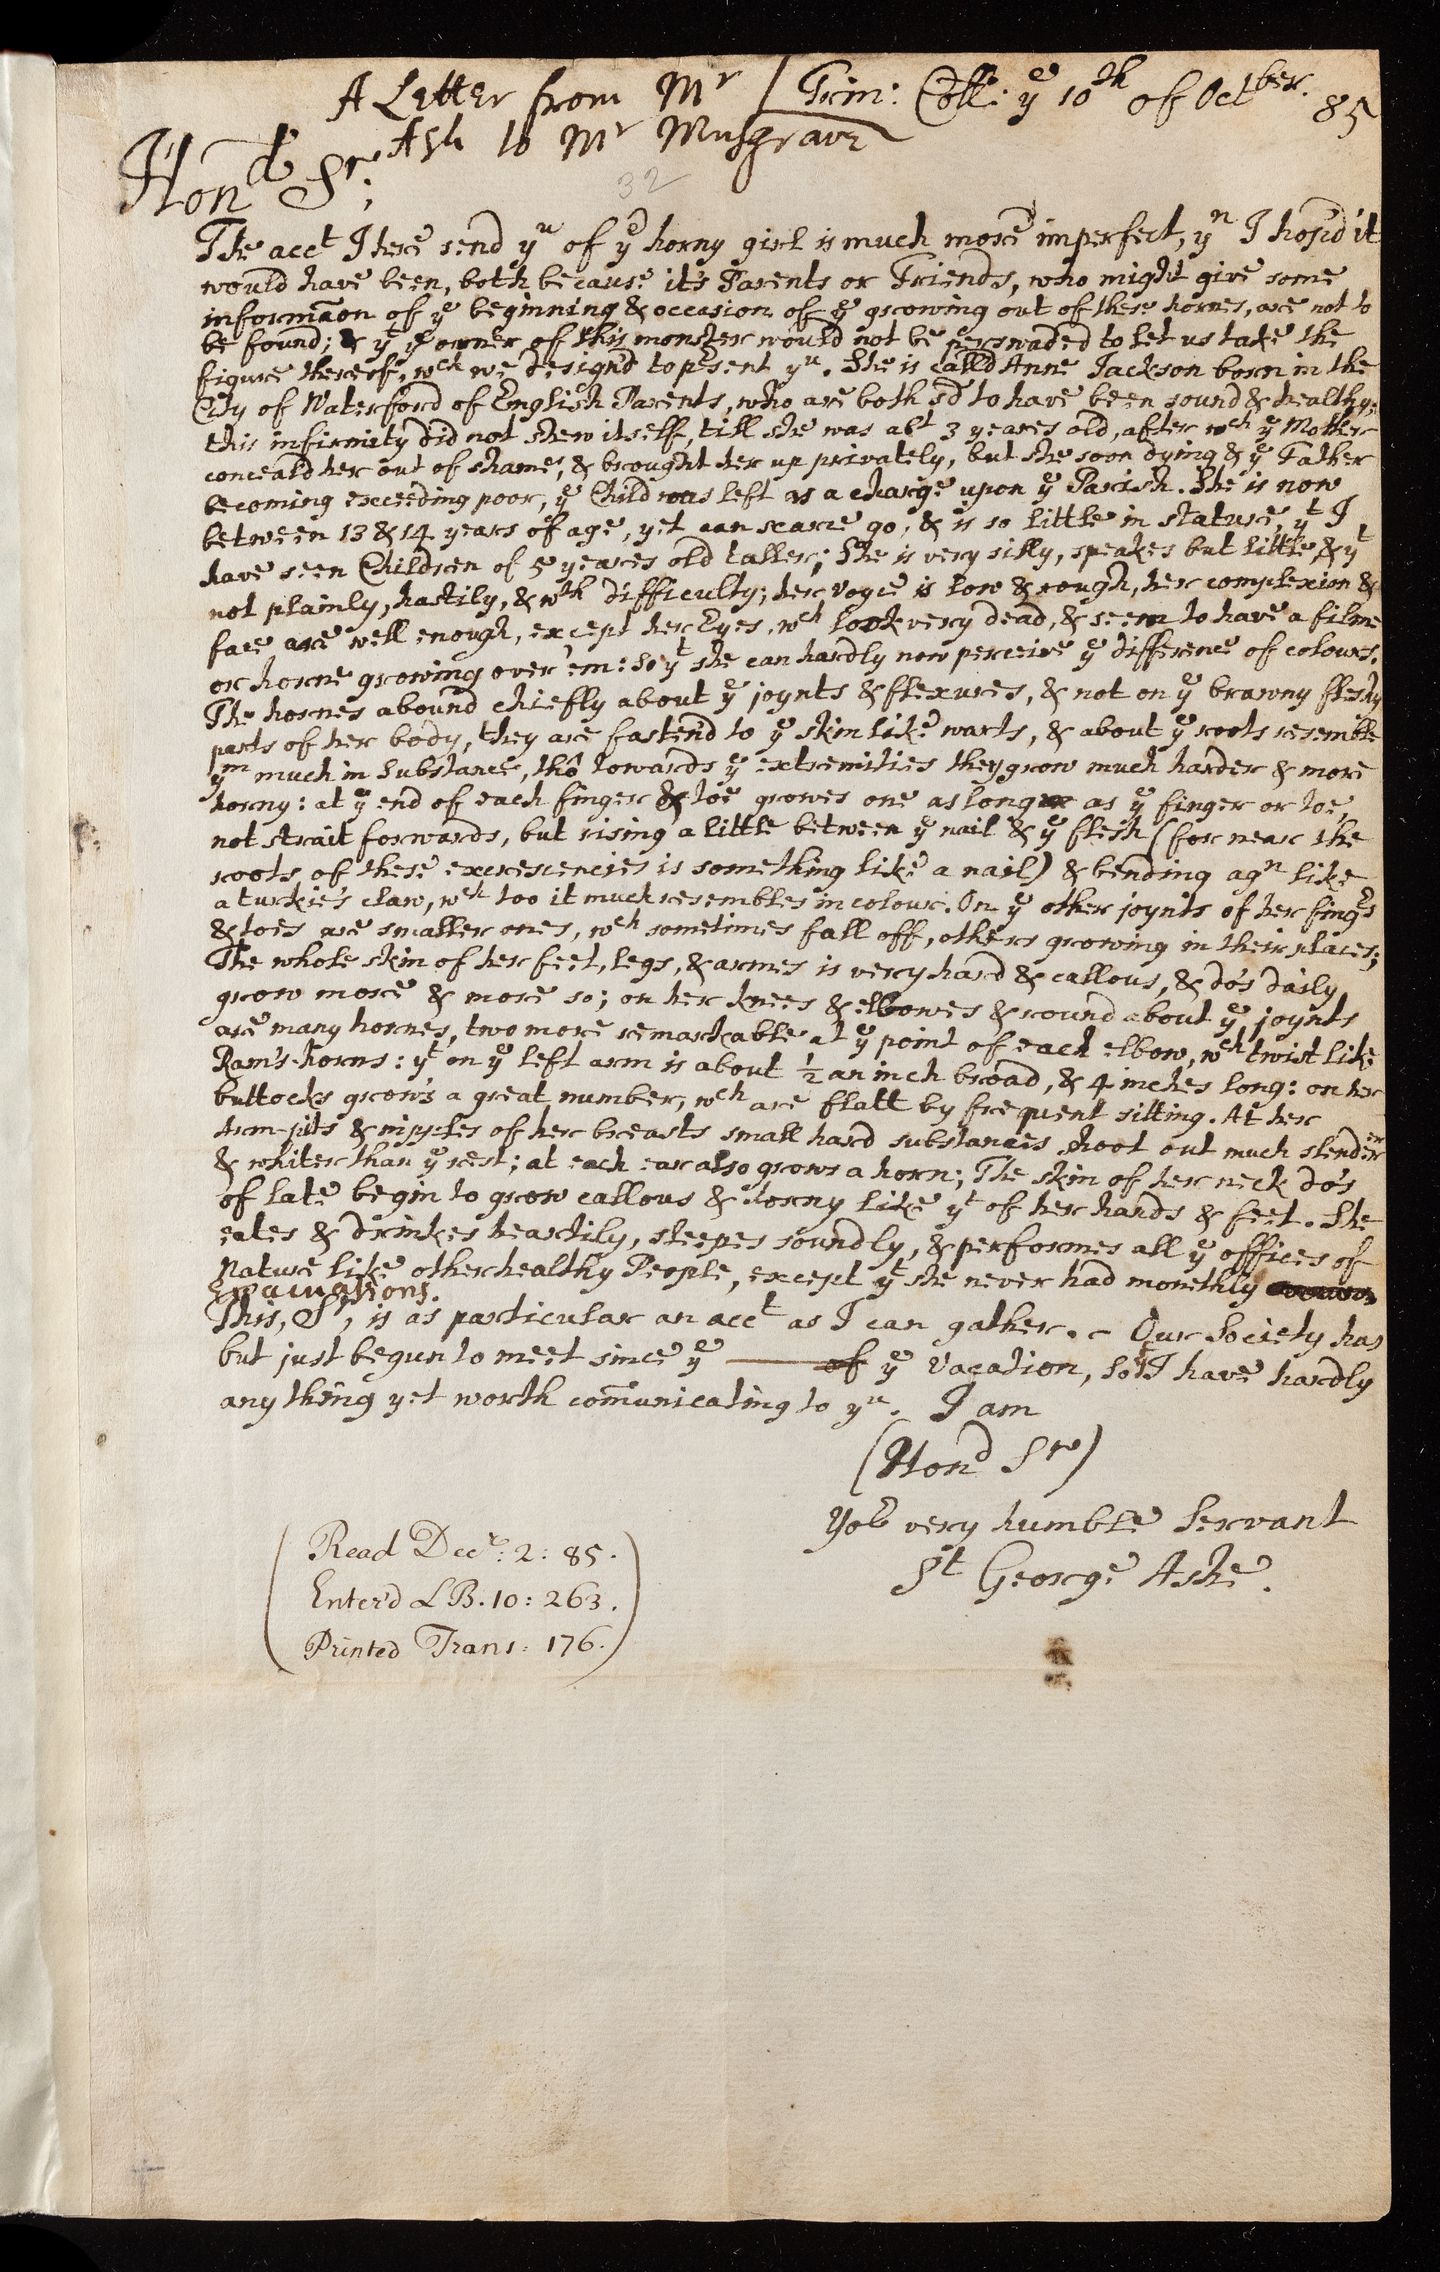 A Letter from Mr Ash to Mr Musgrave
Trin: Coll: ye 10th of Octber. 85
32
Hond Sr,
The acct I here send yu of ye horny girl is much more imperfect, yn I hop'd it
would have been, both because it's Parents or Friends, who might give some
informaon of ye beginning & occasion of ye growing out of these hornes, are not to
be found; & yt ye owner of this monster would not be perswaded to let us take the
figure thereof, wch we design'd to present yu. She is call'd Anne Jackson born in the
City of Waterford of English Parents, who are both sd to have been sound & healthy;
this infirmity did not shew itself, till she was abt 3 yeares old, after wch ye Mother
conceal'd her out of shame, & brought her up privately, but she soon dying & ye Father
becoming exceeding poor, ye Child was left as a charge upon ye Parish. She is now
between 13 & 14 years of age, yet can scarce go, & is so little in stature, yt I
have seen Children of 5 yeares old taller; She is very silly, speakes but little, & yt
not plainly, hastily, & wth difficulty; her voyce is low & rough, her complexion &
face are well enough, except her Eyes, wch look very dead, & seem to have a filme
or horne growing over 'em: so yt she can hardly now perceive ye difference of colours.
The hornes abound chiefly about ye joynts & flexures, & not on ye brawny fleshy
parts of her body, they are fasten'd to ye skin like warts, & about ye roots resemble
ym much in substance, tho towards ye extremities they grow much harder & more
horny: at ye end of each finger & toe growes one as long as ye finger or toe,
not strait forwards, but rising a little between ye nail & ye flesh (for near the
roots of these excrescencies is something like a nail) & bending agn like
a turkie's claw, wch too it much resembles in colour. On ye other joynts of her fingers
& toes are smaller ones, wch sometimes fall off, others growing in their places;
The whole skin of her feet, legs, & armes is very hard & callous, & do's daily
grow more & more so; on her knees & elbowes & round about ye joynts
are many hornes, two more remarkable at ye point of each elbow, wch twist like
Ram's-horns: yt on ye left arm is about ½ an inch broad, & 4 inches long: on her
buttocks grow's a great number, wch are flatt by frequent sitting. At her
Arm-pits & nipples of her breasts small hard substances shoot out much slender
& whiter than ye rest; at each ear also grows a horn; The skin of her neck do's
of late begin to grow callous & horny like yt of her hands & feet. She
eates & drinkes heartily, sleepes soundly, & performes all ye offices of
Nature like other healthy People, except yt she never had monethly
Evacuations.
This, Sr, is as particular an acct as I can gather. – Our Society has
but just begun to meet since ye of ye Vacation, so yt I have hardly
any thing yet worth comunicating to yu. I am
(Hond Sr)
Yor very humble Servant
St George Ashe.
Read Decr: 2: 85.
Enter'd LB. 10: 263.
Printed Trans: 176.